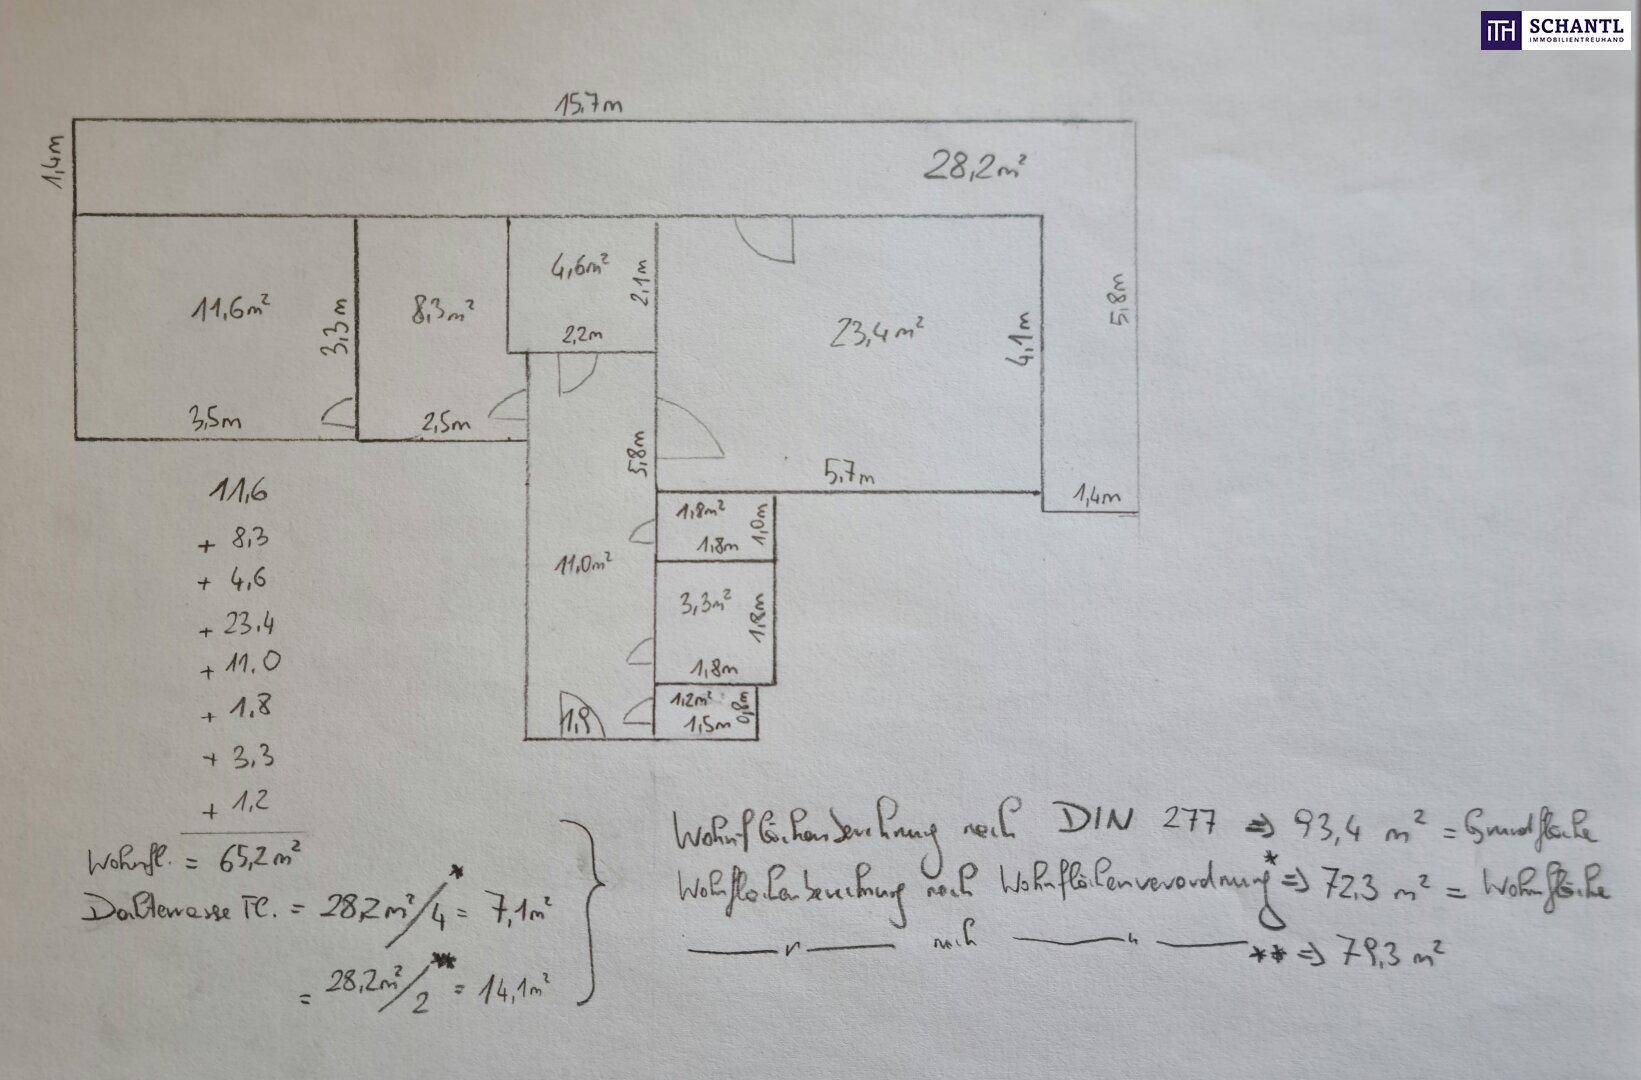 ITH SCHANTL
IMMOBILIENTREUHAND
15,7m
1,4m
28,2m²
11,6m²
3,3m
3,5m
8,3m²
2,5m
4,6m²
2,1m
2,2m
23,4m²
4,1m
5,8m
5,7m
1,4m
5,8m
11,0m²
1,8m²
1,0m
1,8m
3,3m²
1,8m
1,8m
1,2m²
0,8m
1,5m
1,9
11,6
+ 8,3
+ 4,6
+ 23,4
+ 11,0
+ 1,8
+ 3,3
+ 1,2
Wohnfl. = 65,2m²
= 28,2m²/4 * = 7,1m²
= 28,2m²/2 ** = 14,1m²
Wohnflächenberechnung nach DIN 277 => 93,4 m² = Grundfläche
Wohnflächenberechnung nach Wohnflächenverordnung* => 72,3 m² = Wohnfläche
—— " —— nach —— " —— ** => 79,3 m²